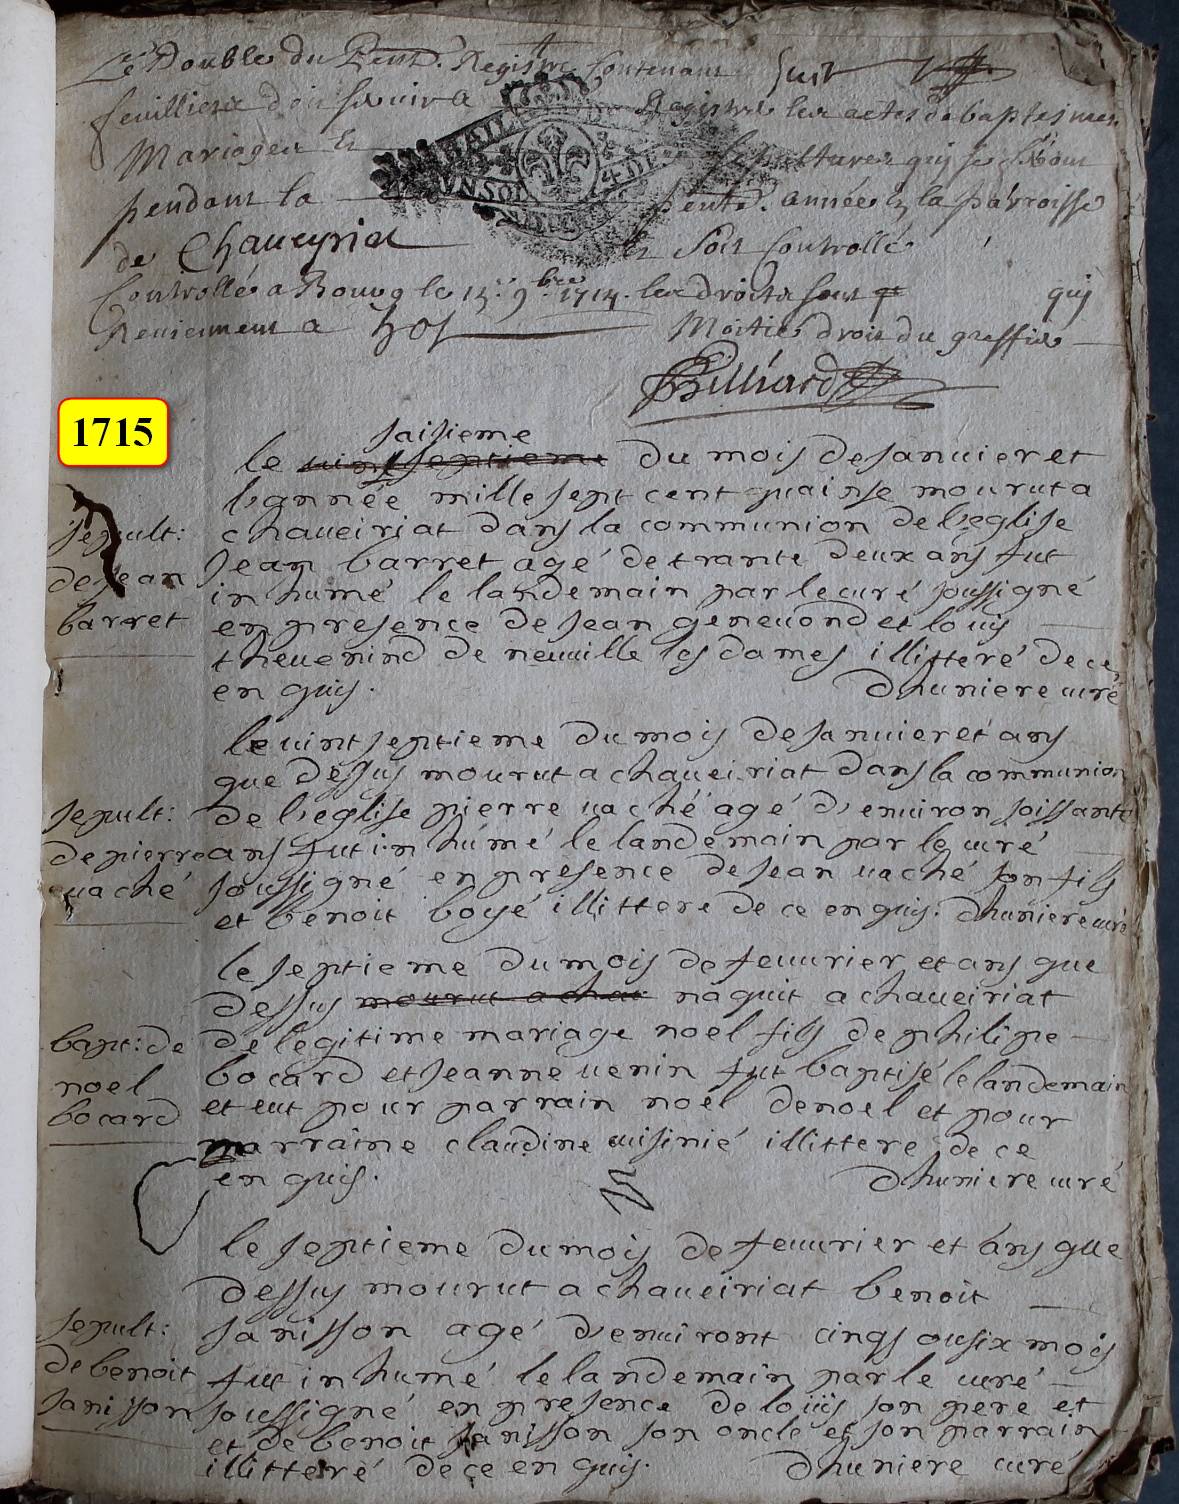 Le Double du Registre Contenant huit
feuilliers Registre les actes de baptesmes
Mariages Et Sepultures quy se feront
pendant la année En la parroisse
de Chaveyriat Et Soit Controllé
Controllé a Bourg le 15e 9bre 1714. les droits sont quy
Reviennent a Moitié droit du greffier
Billiard
1715
saisieme
le vintseptieme du mois de Janvier et
l'année mille sept cent quainse mourut a
sepult: chaveiriat dans la communion de l'eglise
de Jean Jean barret agé de trante deux ans fut
barret inhumé le landemain par le curé soussigné
en presence de Jean genevond et louis
thevenind de neuville les dames illitteré de ce
en quis. dhuniere curé
le vintseptieme du mois de Janvier et ans
que dessus mourut a chaveiriat dans la communion
sepult: de l'eglise pierre vaché agé d'environ soissante
de pierre ans fut inhumé le landemain par le curé
vaché soussigné en presence de Jean vaché son fils
et benoit boyé illittere de ce en quis. dhuniere curé
le septieme du mois de fevvrier et ans que
dessus mourut a chav naquit a chaveiriat
bapt: de de legitime mariage noel fils de philipe
noel bocard et Jeanne venin fut baptisé le landemain
bocard et eut pour parrain noel denoel et pour
marraine claudine cuisinié illittere de ce
en quis. dhuniere curé
le septieme du mois de fevvrier et ans que
dessus mourut a chaveiriat benoit
sepult: Janisson agé d'environt cinqs ou six mois
de benoit fut inhumé le landemain par le curé
Janisson soussigné en presence de loüis son pere et
et de benoit Janisson son oncle et son parrain
illitteré de ce en quis. dhuniere curé